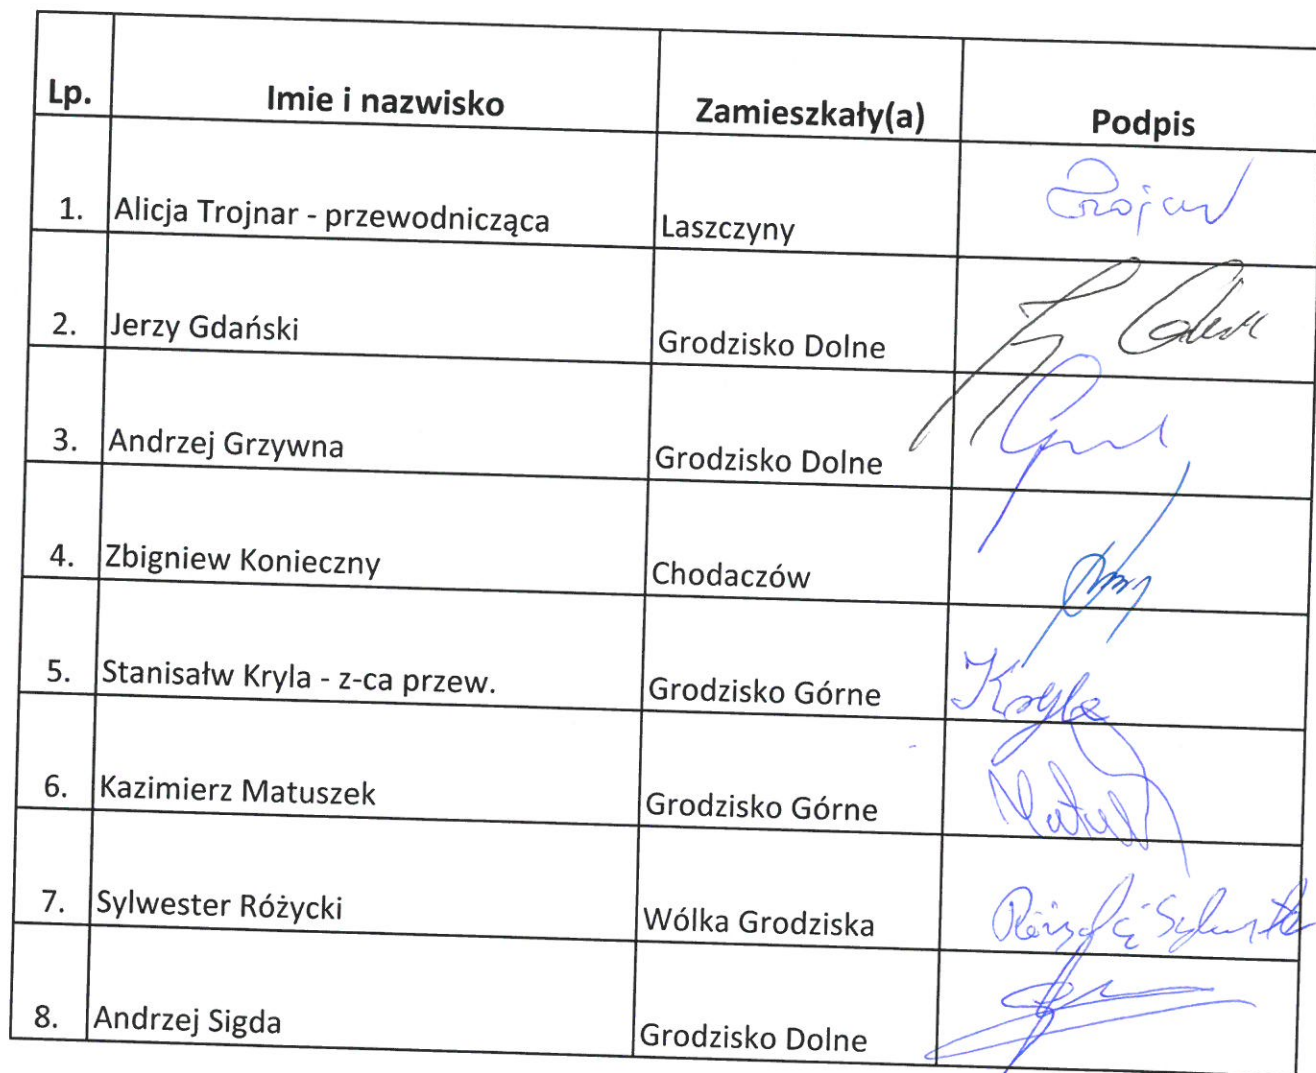 Lp. Imie i nazwisko Zamieszkały(a) Podpis
1. Alicja Trojnar - przewodnicząca Laszczyny
2. Jerzy Gdański Grodzisko Dolne
3. Andrzej Grzywna Grodzisko Dolne
4. Zbigniew Konieczny Chodaczów
5. Stanisałw Kryla - z-ca przew. Grodzisko Górne Kryla
6. Kazimierz Matuszek Grodzisko Górne
7. Sylwester Różycki Wólka Grodziska
8. Andrzej Sigda Grodzisko Dolne